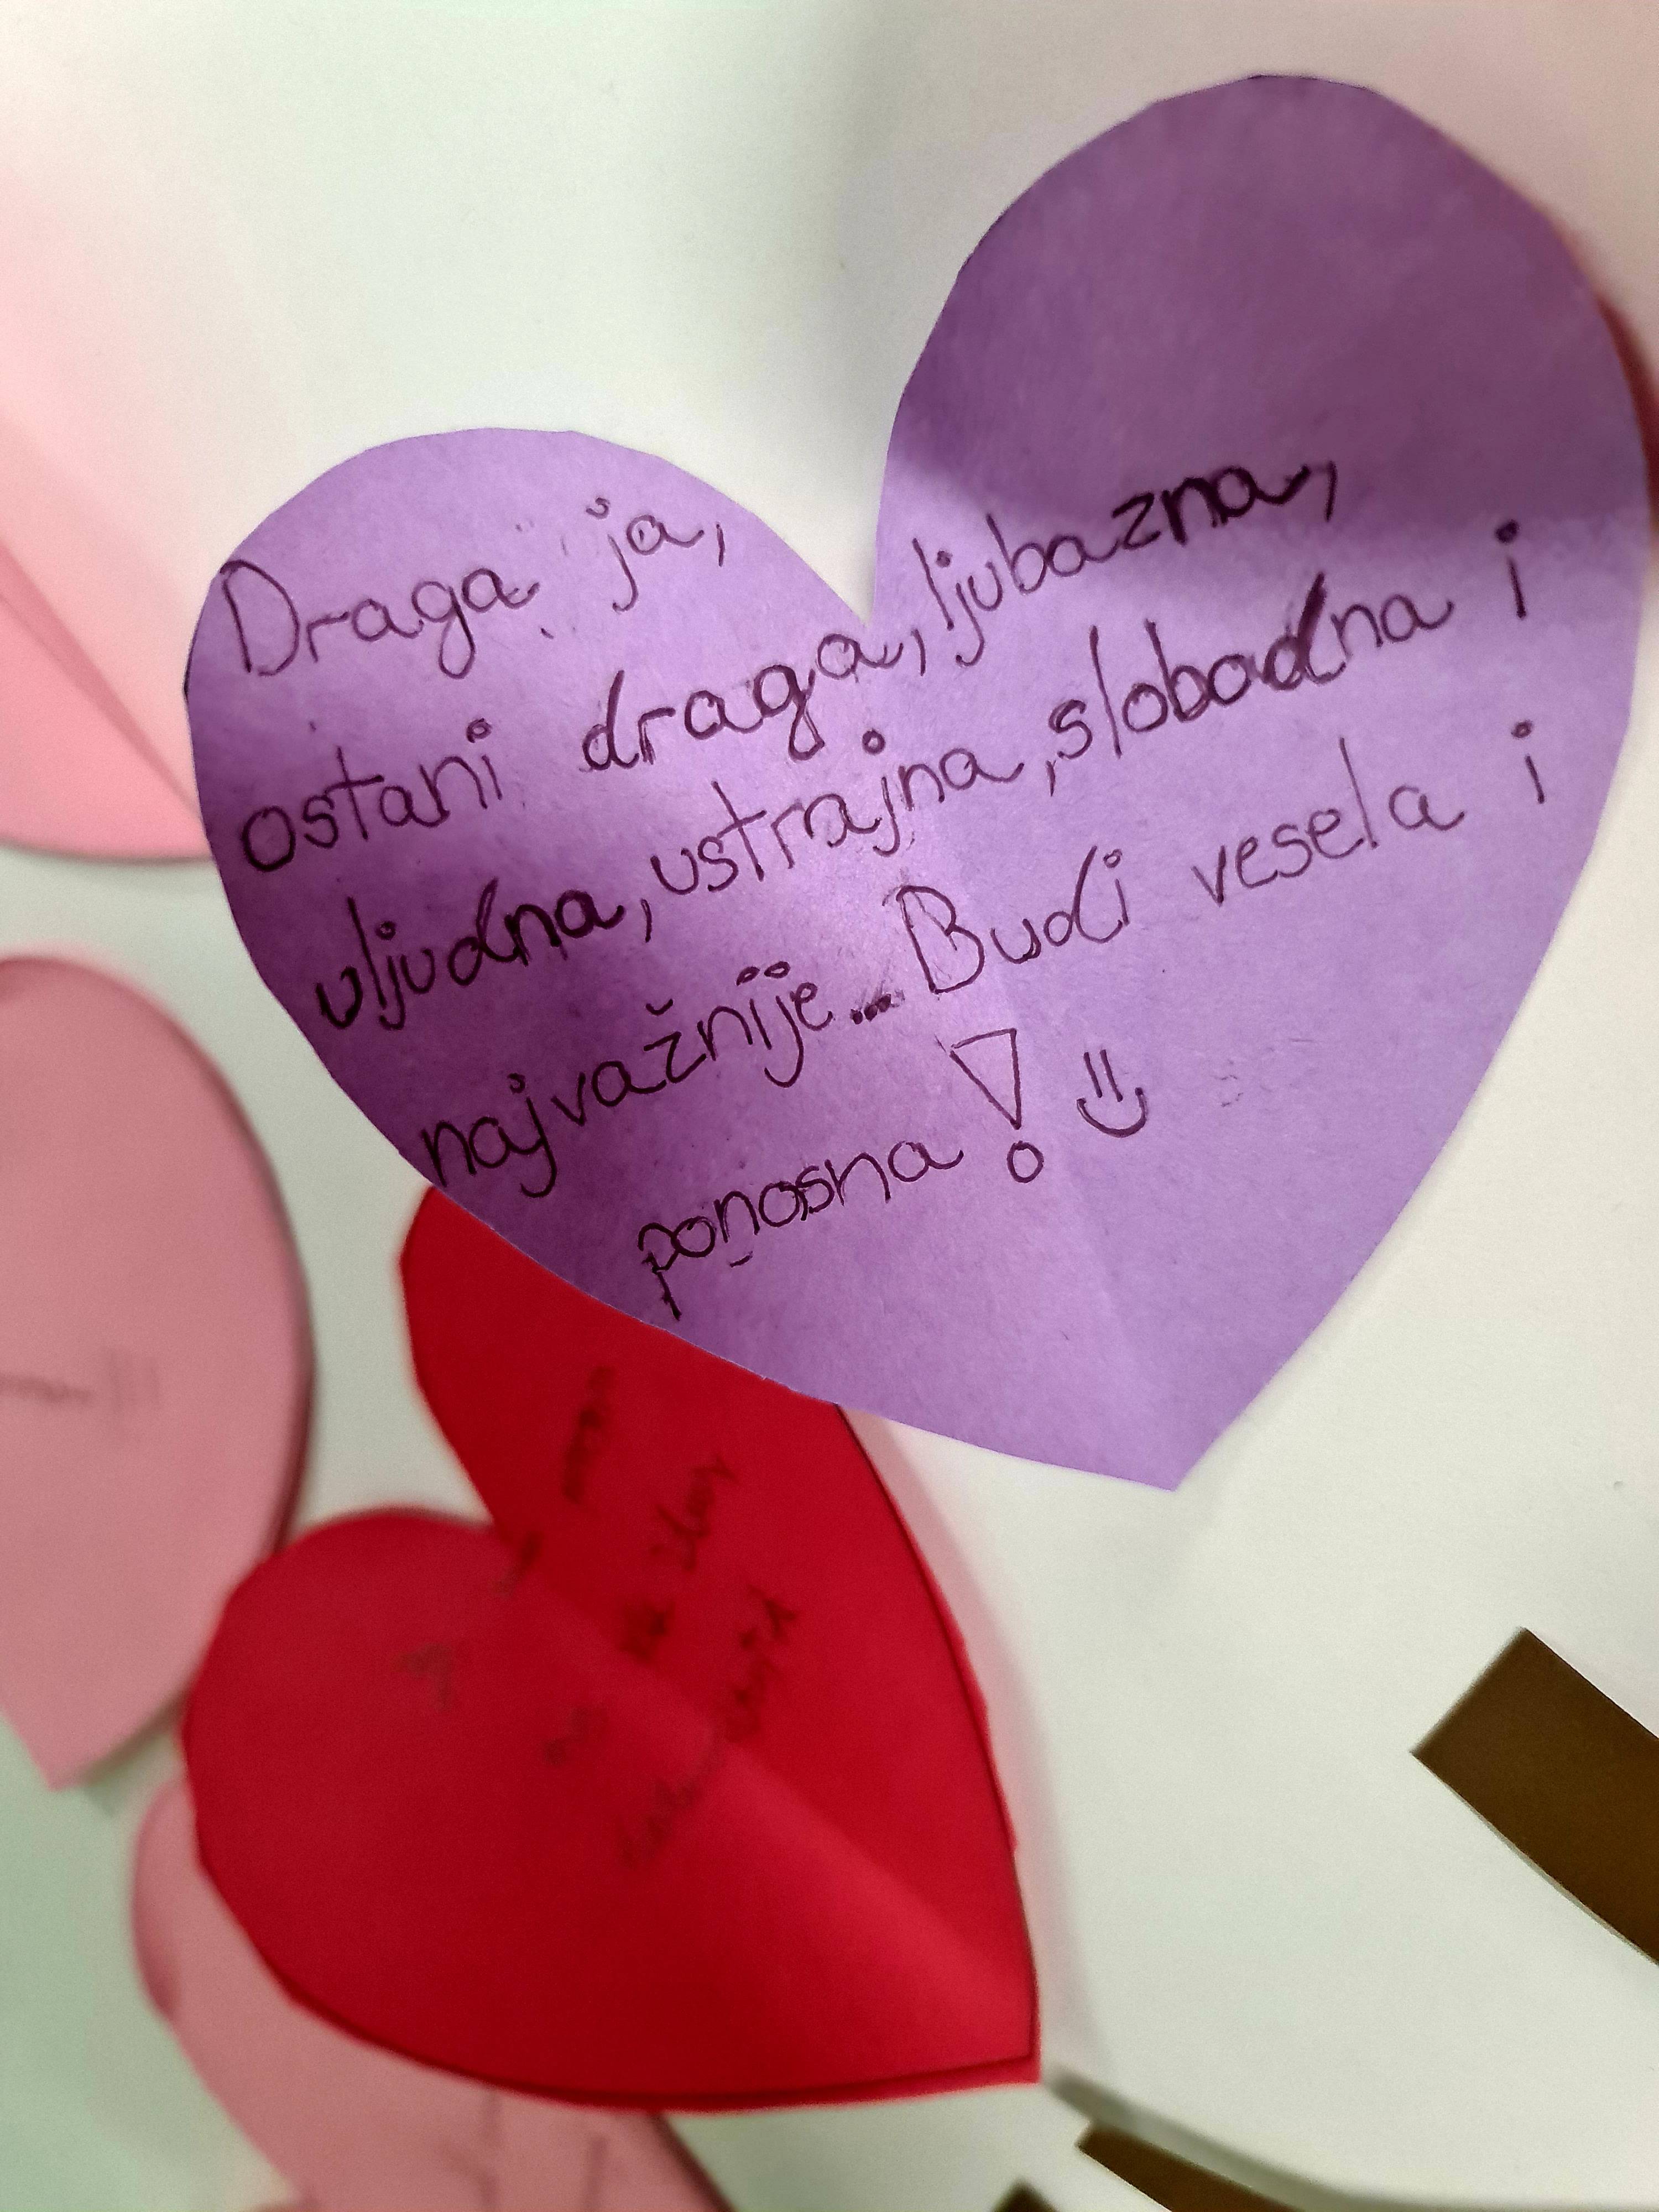 Draga ja,
ostani draga, ljubazna,
uljudna, ustrajna, slobodna i
najvažnije... Budi vesela i
ponosna! =)